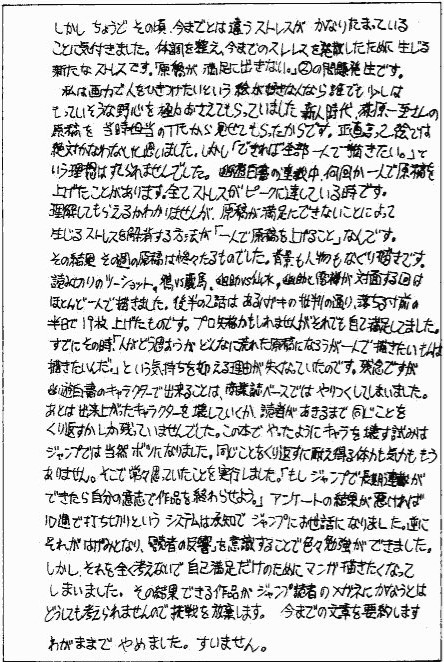 しかし ちょうど その頃、今までとは違うストレスが かなりたまっている
ことに気付きました。体調を整え、今までのストレスを発散したために生じる
新たなストレスです。「原稿が 満足に出きない。」②の問題発生です。
私は画力で人をひきつけたいという 絵が好きな人なら誰でも少しは
もっていそうな野心を 極力おさえてもらっていました。新人時代、萩原一至さんの
原稿を 当時担当のTさんから見せてもらったからです。正直言って 絵では
絶対かなわないと思いました。しかし「できれば全部 一人で描きたい。」と
いう理想はすてられませんでした。幽遊白書の連載中、何回か一人で原稿を
上げたことがあります。全てストレスがピークに達している時です。
理解してもらえるかわかりませんが、原稿が満足にできないことによって
生じるストレスを解消する方法が「一人で原稿を上げること」なんです。
その結果 その週の原稿は惨々たるものでした。背景も人物もなぐり描きです。
読み切りのツーショット。鴉VS蔵馬。幽助VS仙水、幽助と雷禅が対面する回は
ほとんど一人で描きました。後半の2話は あるハガキの批判の通り、落ちる寸前の
半日で19枚上げたものです。プロ失格かもしれませんがそれでも自己満足してました。
すでにその時「人がどう思おうが どんなに荒れた原稿になろうが一人で描きたいものは
描きたいんだ。」という気持ちを抑える理由が失くなっていたのです。残念ですが
幽遊白書のキャラクターで出来ることは、商業誌ベースでは やりつくしてしまいました。
あとは出来上がったキャラクターを壊していくか、読者があきるまで同じことを
くり返すかしか残っていませんでした。この本で やったようにキャラを壊す試みは
ジャンプでは当然ボツになりました。同じことをくり返すに耐え得る体力も気力もも う
ありません。そこで常々思っていたことを実行しました。「もし ジャンプで長期連載が
できたら自分の意志で作品を終わらせよう。」アンケートの結果が悪ければ
10週で打ち切りという システムは承知で ジャンプにお世話になりました。逆に
それが はげみとなり、「読者の反響」を意識することで色々勉強ができました。
しかし、それを全く考えないで 自己満足だけのためにマンガが描きたくなって
しまいました。その結果できる作品が ジャンプ読者の メガネにかなうとは
どうしても考えられませんので挑戦を放棄します。 今までの文章を要約します
わがままで やめました。すいません。